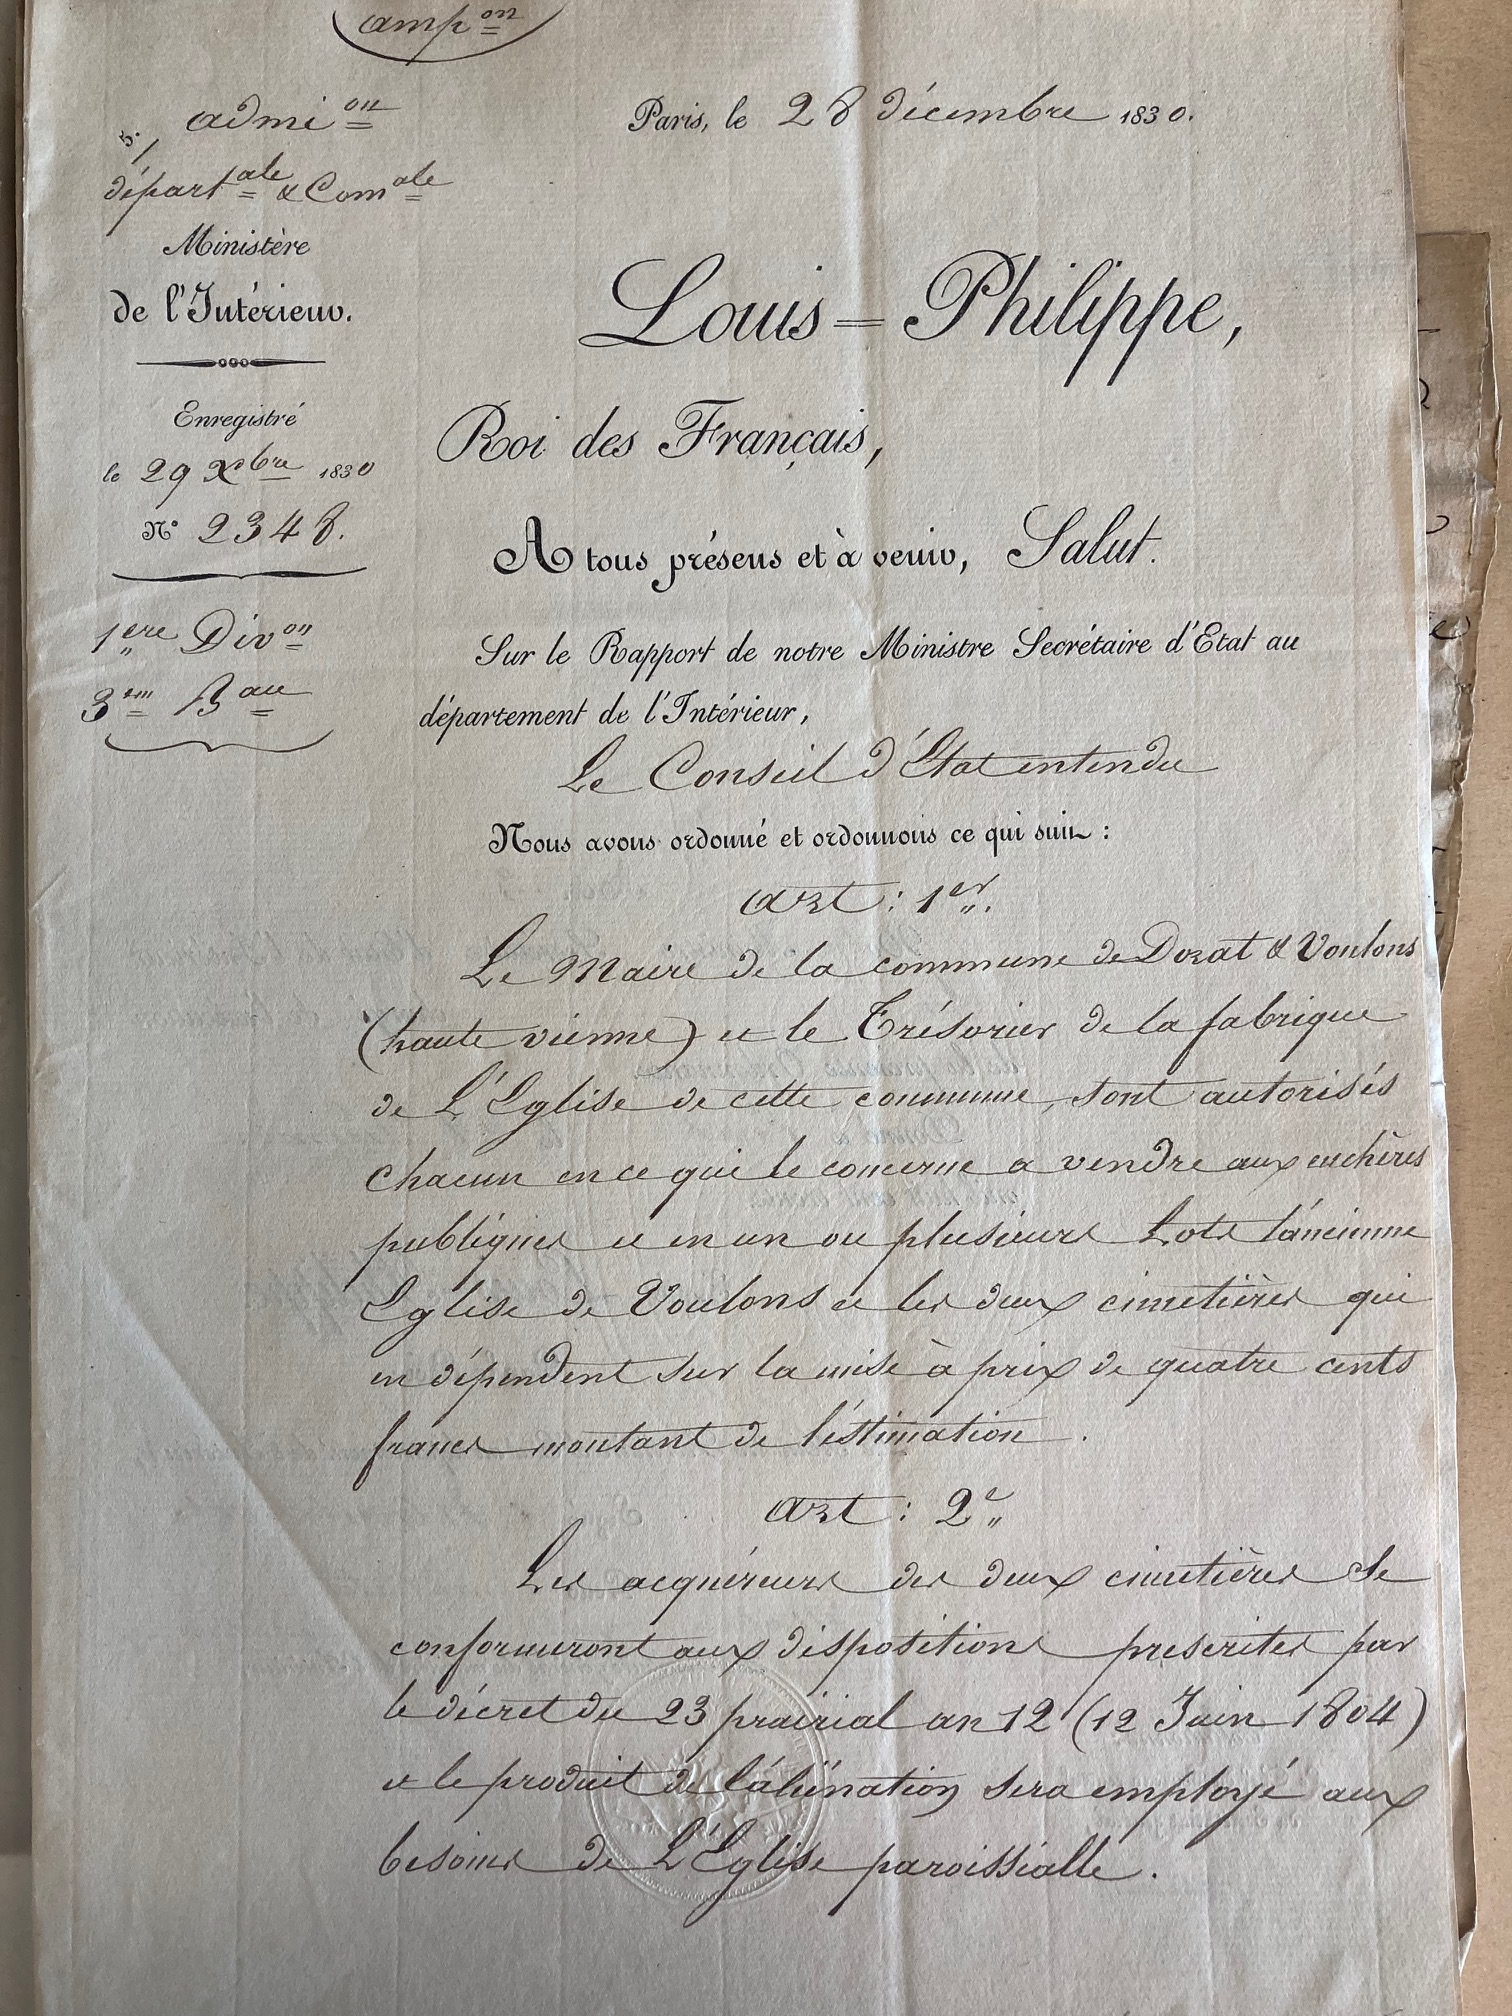 amp on
admi on
5.
départ ale & Com ale
Ministère
de l'Intérieur.
Enregistré
le 29 Xbre 1830
N° 2348.
1ere Div on
3em B au
Paris, le 28 décembre 1830.
Louis=Philippe,
Roi des Français,
A tous présens et à venir, Salut.
Sur le Rapport de notre Ministre Secrétaire d'Etat au
département de l'Intérieur,
Le Conseil d'Etat entendu
Nous avons ordonné et ordonnons ce qui suit :
art : 1er.
Le Maire de la commune de Dorat & Voulons
(haute vienne) et le Trésorier de la fabrique
de L'Eglise de cette commune, sont autorisés
chacun en ce qui le concerne a vendre aux enchères
publiques et en un ou plusieurs Lots l'ancienne
Eglise de Voulons et les deux cimetières qui
en dépendent sur la mise à prix de quatre cents
francs montant de l'éstimation.
art : 2e
Les acquéreurs des deux cimetières se
conformeront aux dispositions prescrites par
le décret du 23 prairial an 12 (12 Juin 1804)
et le produit de l'aliénation sera employé aux
besoins de L'Eglise paroissialle.